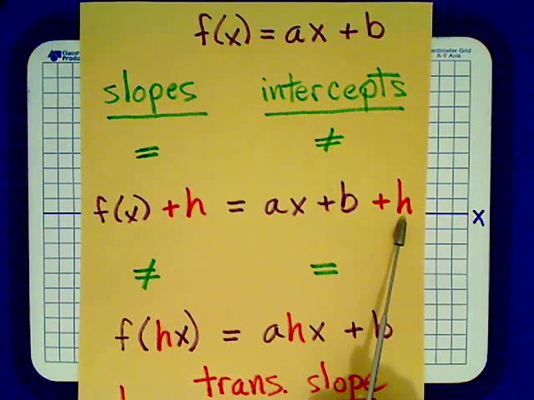 f(x) = ax + b
slopes intercepts
= ≠
f(x) + h = ax + b + h
≠ =
f(hx) = ahx + b
trans. slope
X